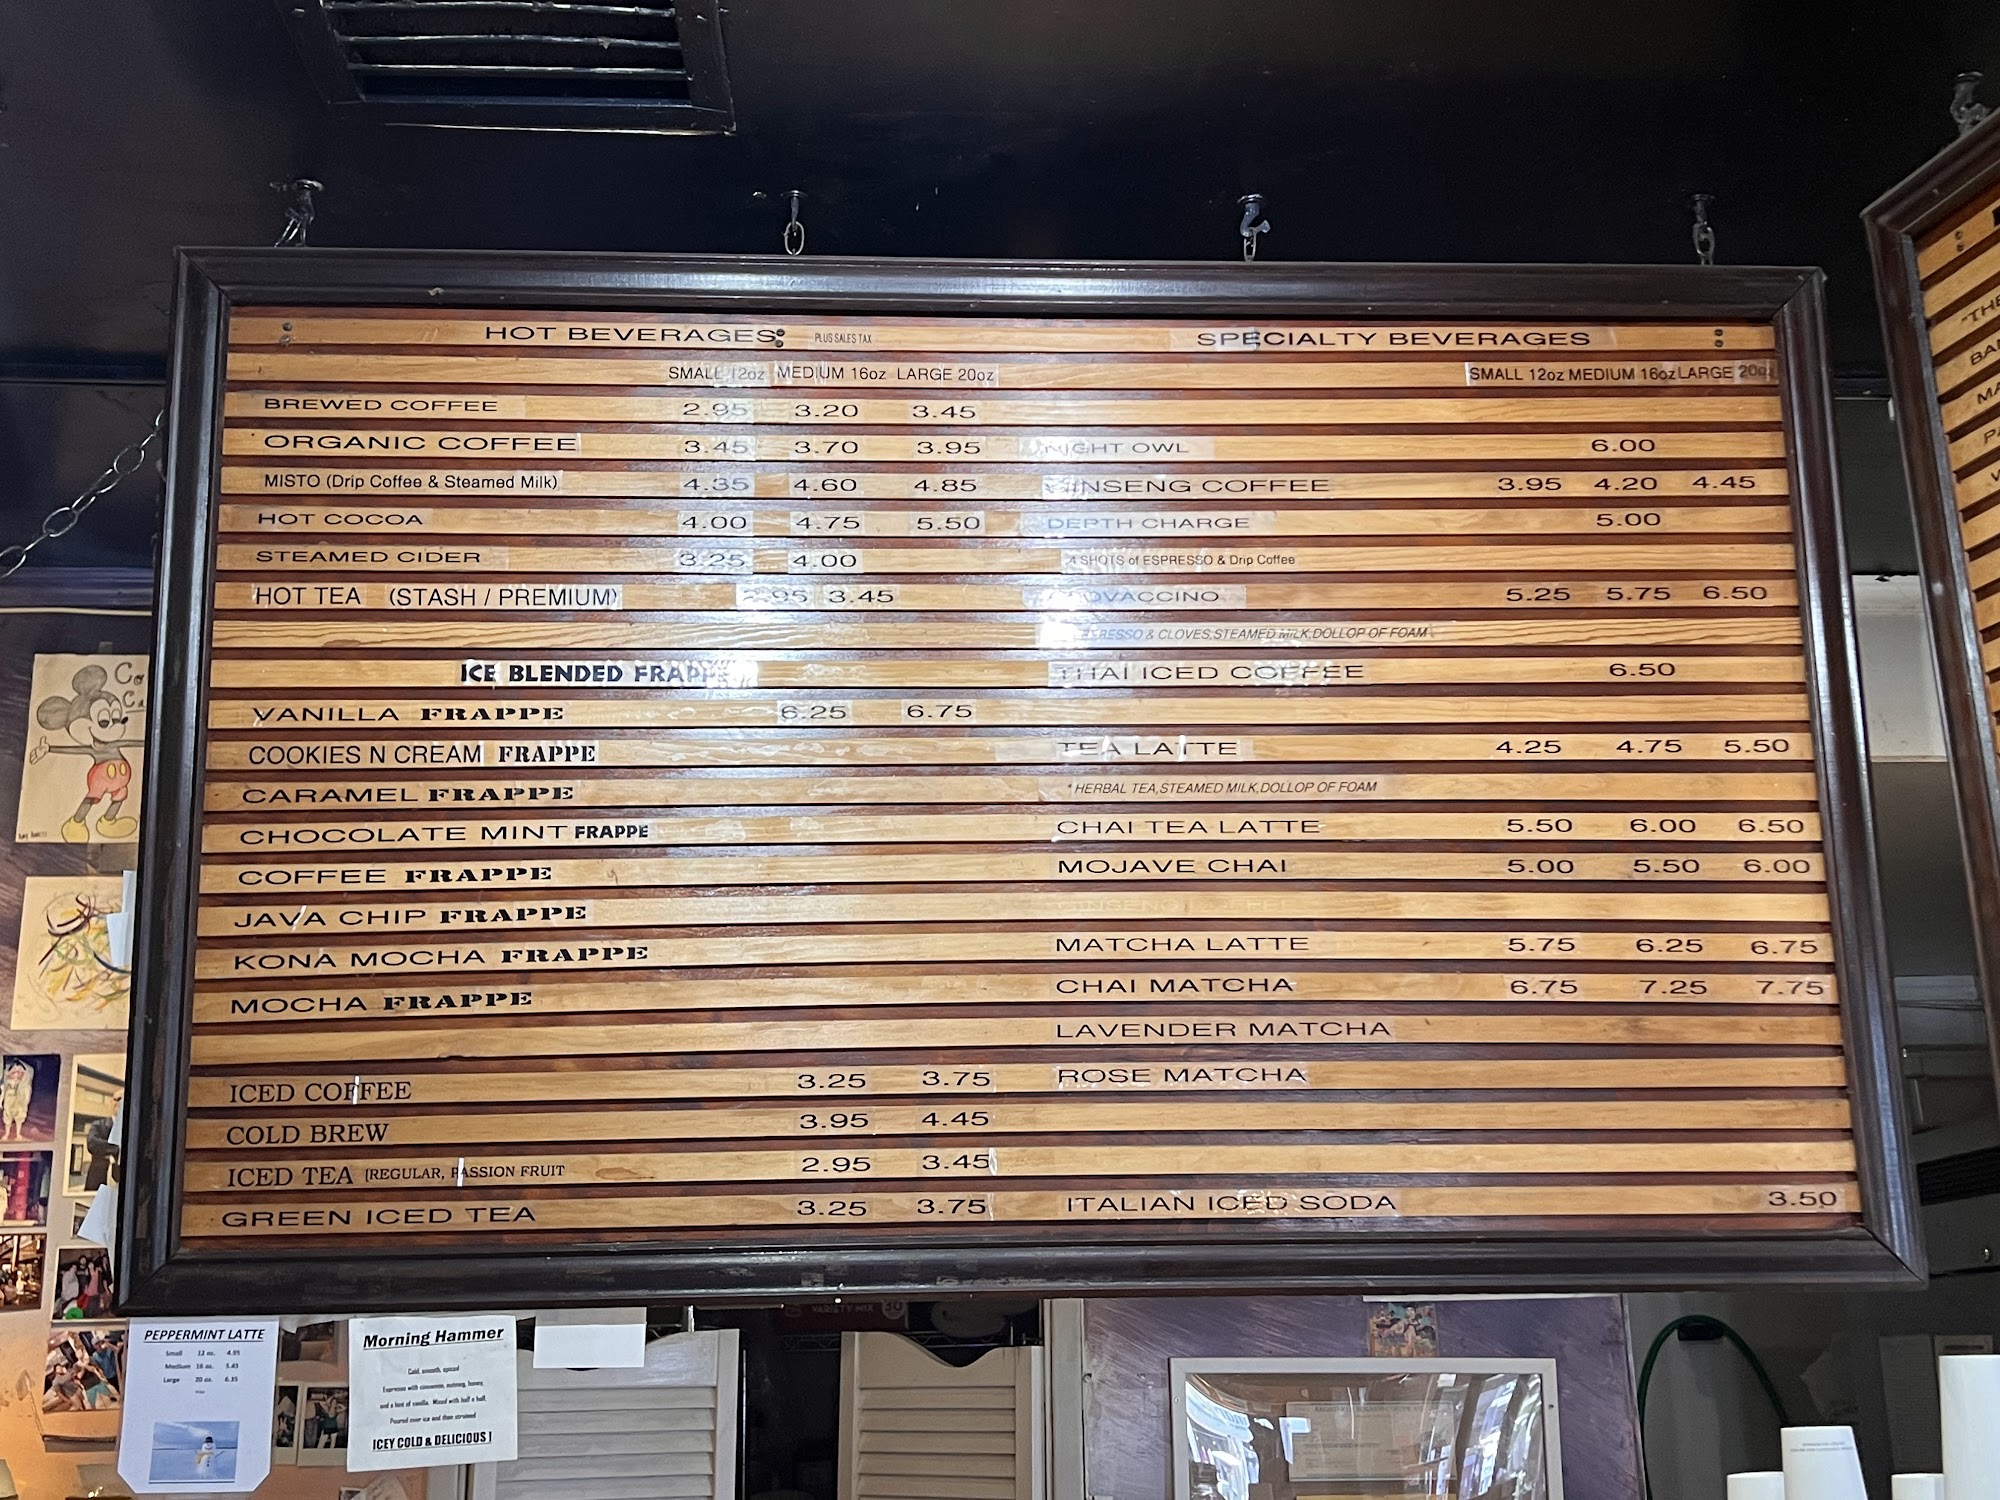 HOT BEVERAGES PLUS SALES TAX
SMALL 12oz MEDIUM 16oz LARGE 20oz
BREWED COFFEE 2.95 3.20 3.45
ORGANIC COFFEE 3.45 3.70 3.95
MISTO (Drip Coffee & Steamed Milk) 4.35 4.60 4.85
HOT COCOA 4.00 4.75 5.50
STEAMED CIDER 3.25 4.00
HOT TEA (STASH / PREMIUM) 2.95 3.45
ICE BLENDED FRAPPE
VANILLA FRAPPE 6.25 6.75
COOKIES N CREAM FRAPPE
CARAMEL FRAPPE
CHOCOLATE MINT FRAPPE
COFFEE FRAPPE
JAVA CHIP FRAPPE
KONA MOCHA FRAPPE
MOCHA FRAPPE
ICED COFFEE 3.25 3.75
COLD BREW 3.95 4.45
ICED TEA (REGULAR, PASSION FRUIT 2.95 3.45
GREEN ICED TEA 3.25 3.75
SPECIALTY BEVERAGES
SMALL 12oz MEDIUM 16oz LARGE 20oz
NIGHT OWL 6.00
GINSENG COFFEE 3.95 4.20 4.45
DEPTH CHARGE 5.00
SHOTS of ESPRESSO & Drip Coffee
5.25 5.75 6.50
ESPRESSO & CLOVES,STEAMED MILK,DOLLOP OF FOAM
THAI ICED COFFEE 6.50
TEA LATTE 4.25 4.75 5.50
* HERBAL TEA,STEAMED MILK,DOLLOP OF FOAM
CHAI TEA LATTE 5.50 6.00 6.50
MOJAVE CHAI 5.00 5.50 6.00
MATCHA LATTE 5.75 6.25 6.75
CHAI MATCHA 6.75 7.25 7.75
LAVENDER MATCHA
ROSE MATCHA
ITALIAN ICED SODA 3.50
PEPPERMINT LATTE
Small 12 oz. 4.95
Medium 16 oz. 5.45
Large 20 oz. 6.35
Morning Hammer
Cold, smooth, spiced
Espresso with cinnamon, nutmeg, honey,
and a hint of vanilla. Mixed with half n half,
Poured over ice and then strained
ICEY COLD & DELICIOUS !
VARIETY MIX 30